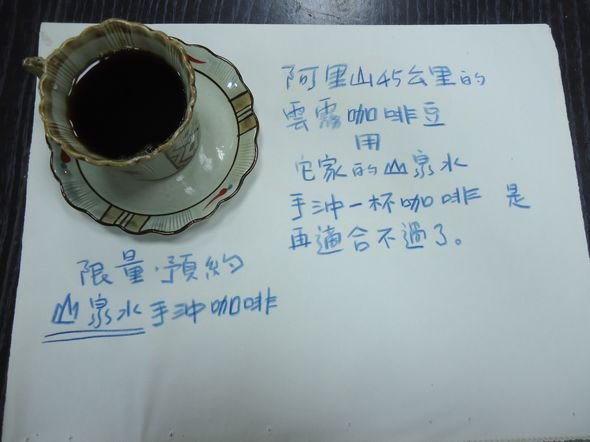 阿里山45公里的
雲霧咖啡豆
用
它家的山泉水
手沖一杯咖啡 是
再適合不過了。
限量·預約
山泉水手沖咖啡